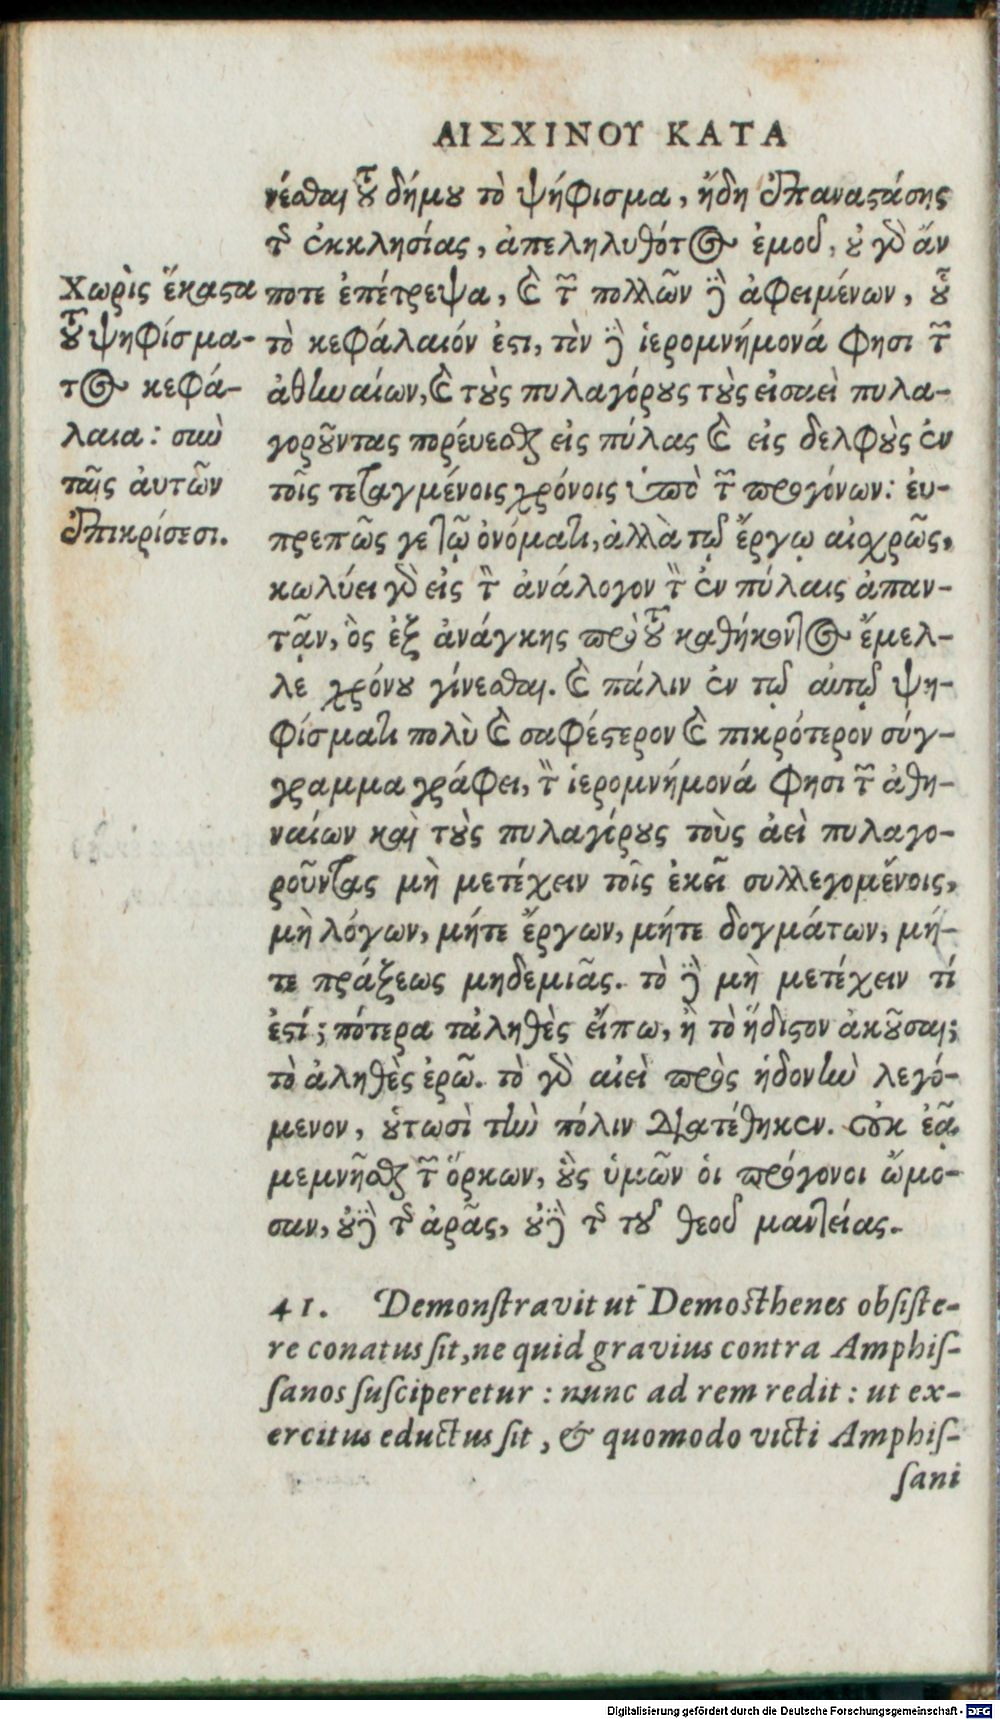 ΑΙΣΧΙΝΟΥ ΚΑΤΑ
νέσθαι τοῦ δήμου τὸ ψήφισμα, ἤδη ἐπαναστάσης
τῆς ἐκκλησίας, ἀπεληλυθότος ἐμοῦ, οὐ γὰρ ἄν
ποτε ἐπέτρεψα, καὶ τῶν πολλῶν δὲ ἀφειμένων, οὗ
τὸ κεφάλαιόν ἐστι, τὸν δὲ ἱερομνήμονά φησι τῶν
ἀθηναίων, καὶ τοὺς πυλαγόρους τοὺς εἰσαεὶ πυλα-
γοροῦντας πορεύεσθαι εἰς πύλας καὶ εἰς δελφοὺς ἐν
τοῖς τεταγμένοις χρόνοις ὑπὸ τῶν προγόνων: εὐ-
πρεπῶς γε τῷ ὀνόματι, ἀλλὰ τῷ ἔργῳ αἰσχρῶς,
κωλύει γὰρ εἰς τὸν ἀνάλογον τὸν ἐν πύλαις ἀπαν-
τᾷν, ὃς ἐξ ἀνάγκης πρὸ τοῦ καθήκοντος ἔμελ-
λε χρόνου γίνεσθαι. καὶ πάλιν ἐν τῷ αὐτῷ ψη-
φίσματι πολὺ καὶ σαφέστερον καὶ πικρότερον σύγ-
γραμμα γράφει, τὸν ἱερομνήμονά φησι τῶν ἀθη-
ναίων καὶ τοὺς πυλαγόρους τοὺς ἀεὶ πυλαγο-
ροῦντας μὴ μετέχειν τοῖς ἐκεῖ συλλεγομένοις,
μὴ λόγων, μήτε ἔργων, μήτε δογμάτων, μή-
τε πράξεως μηδεμιᾶς. τὸ δὲ μὴ μετέχειν τί
ἐστί; πότερα τἀληθὲς εἴπω, ἢ τὸ ἥδιστον ἀκοῦσαι;
τὸ ἀληθὲς ἐρῶ. τὸ γὰρ αἰεὶ πρὸς ἡδονὴν λεγό-
μενον, οὑτωσὶ τὴν πόλιν διατέθηκεν. οὐκ ἐᾷ
μεμνῆσθαι τῶν ὅρκων, οὓς ὑμῶν οἱ πρόγονοι ὤμο-
σαν, οὐδὲ τῆς ἀρᾶς, οὐδὲ τῆς τοῦ θεοῦ μαντείας.
Χωρὶς ἕκαστα
τοῦ ψηφίσμα-
τος κεφά-
λαια: σὺν
ταῖς αὐτῶν
ἐπικρίσεσι.
41. Demonſtravit ut Demoſthenes obſiſte-
re conatus ſit, ne quid gravius contra Amphiſ-
ſanos ſuſciperetur : nunc ad rem redit : ut ex-
ercitus eductus ſit, & quomodo victi Amphiſ-
ſani
Digitalisierung gefördert durch die Deutsche Forschungsgemeinschaft - DFG